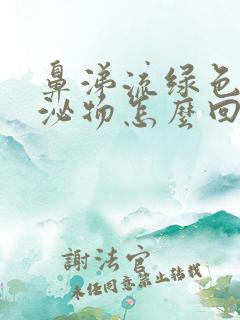 鼻涕流绿色
泌物怎麽回
謝法官
未经同意禁止转载